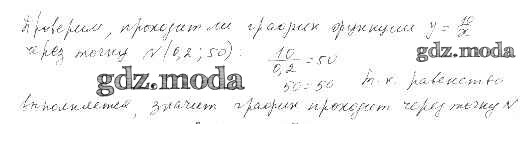 Проверим, проходит ли график функции y = 10/x
через точку N(0,2; 50): 10/0,2 = 50
gdz.moda
gdz.moda
50 = 50 т.к. равенство
выполняется, значит график проходит через точку N